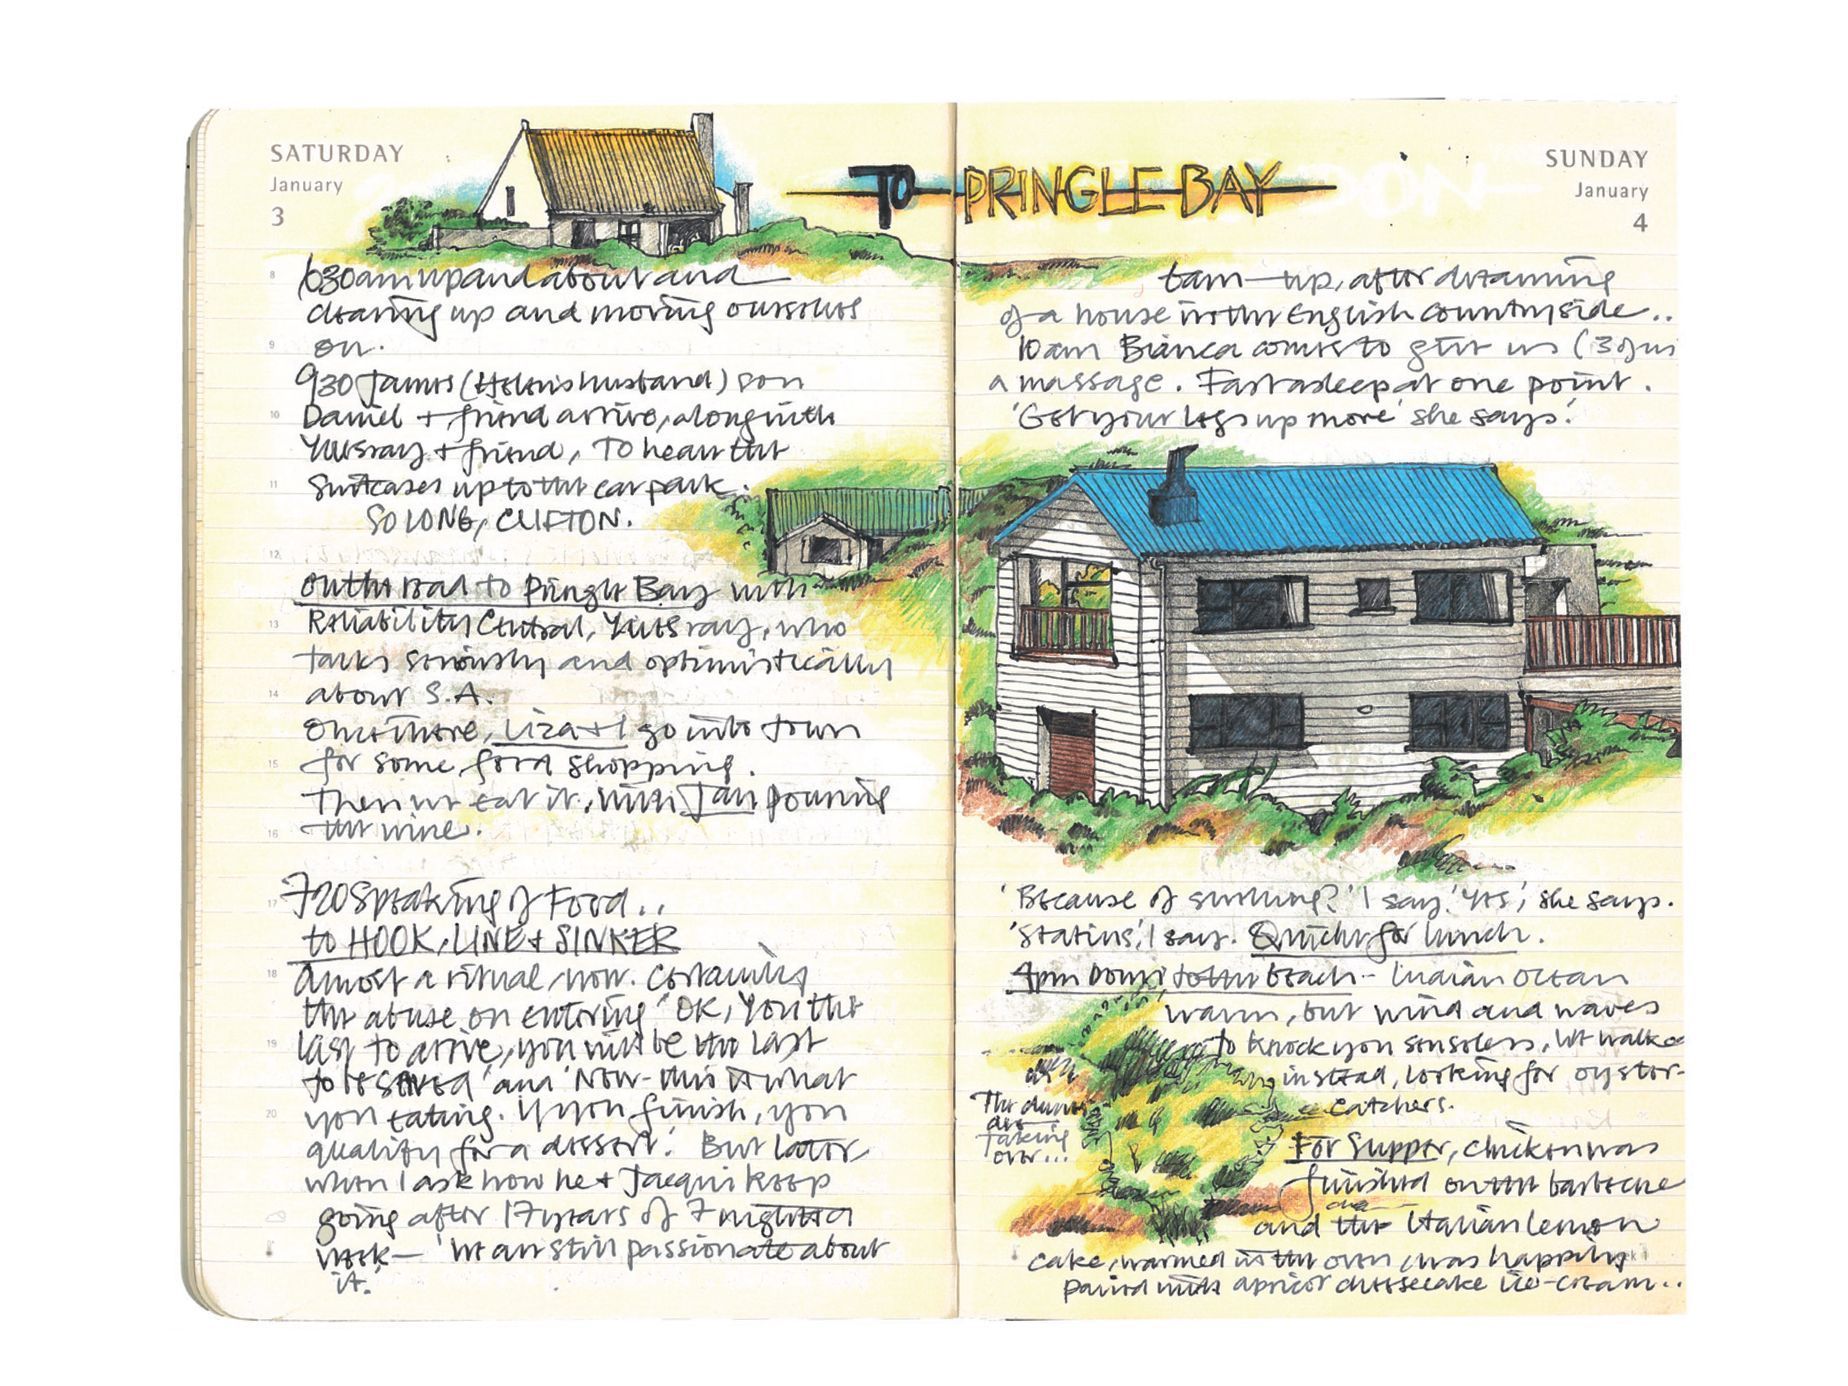 SATURDAY
January
3
TO PRINGLE BAY
SUNDAY
January
4
630am up and about and
clearing up and moving ourselves
on.
930 James (Helen's husband) son
Daniel + friend arrive, along with
+ friend, to hear the
suitcases up to the car park.
SO LONG, CLIFTON.
on the road to Pringle Bay with
Reliability Central, who
talks seriously and optimistically
about S.A.
Once there, Liza + I go into town
for some food shopping.
Then we eat it, with Jan pouring
the wine.
720 Speaking of Food..
to HOOK, LINE + SINKER
Almost a ritual now. Certainly
the abuse on entering 'OK, You the
last to arrive, you will be the last
to be served' and 'Now - this is what
you eating. If you finish, you
qualify for a dessert.' But later
when I ask how he + Jacqui keep
going after 17 years of 7 nights a
week — 'We are still passionate about
it.'
8
9
10
11
12
13
14
15
16
17
18
19
20
6am — up, after dreaming
of a house in the English countryside..
10am Bianca comes to give us (3 of us
a massage. Fast asleep at one point.
'Get your legs up more' she says.'
'Because of swelling?' I say. 'Yes', she says.
'Statins', I say. Quiche for lunch.
4pm Down to the beach - Indian Ocean
warm, but wind and waves
to knock you senseless, we walked
instead, looking for oyster-
catchers.
The dunes
are
taking
over...
For Supper, chicken was
finished on the barbecue
and the Italian lemon
cake, warmed in the oven, was happily
paired with apricot cheesecake ice-cream..